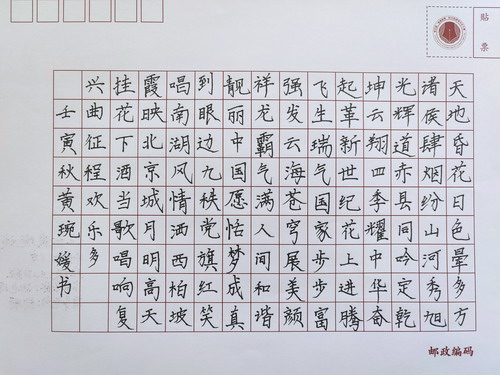 天地昏花日色晕多方
渚侯肆烟纷山河秀旭
光辉道赤县同吟定乾
坤云翔四季耀中华奋
起革新世纪花上进腾
飞生瑞气国家步步富
强发云海苍穹展美颜
祥龙霸气满人间和谐
靓丽中国愿恬梦成真
到眼边九秩党旗红笑
唱南湖风情洒西柏坡
霞映北京城月明高天
挂花下酒当歌唱响复
兴曲征程欢乐多
壬寅秋黄琬媛书
贴票
邮政编码